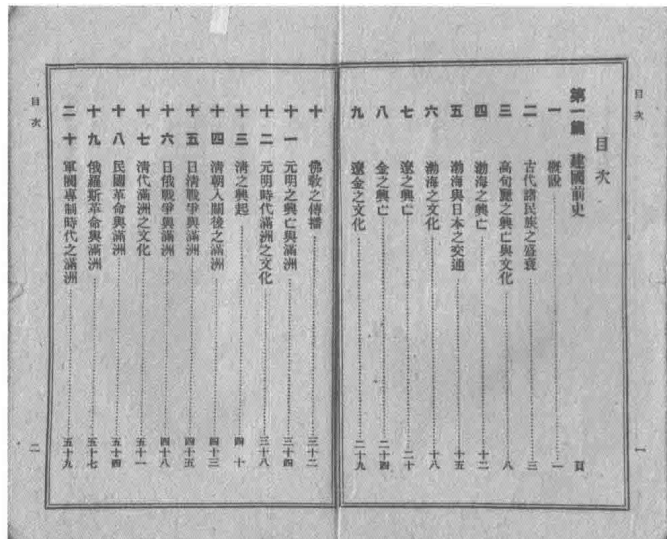 目次
目次
第一篇 建國前史 頁
一 概說 一
二 古代諸民族之盛衰 三
三 高句麗之興亡與文化 八
四 渤海之興亡 十二
五 渤海與日本之交通 十五
六 渤海之文化 十八
七 遼之興亡 二十
八 金之興亡 二十四
九 遼金之文化 二十九
一
目次
十 佛敎之傳播 三十二
十一 元明之興亡與滿洲 三十四
十二 元明時代滿洲之文化 三十八
十三 淸之興起 四十
十四 淸朝入關後之滿洲 四十三
十五 日淸戰爭與滿洲 四十五
十六 日俄戰爭與滿洲 四十八
十七 淸代滿洲之文化 五十一
十八 民國革命與滿洲 五十四
十九 俄羅斯革命與滿洲 五十七
二十 軍閥專制時代之滿洲 五十九
二